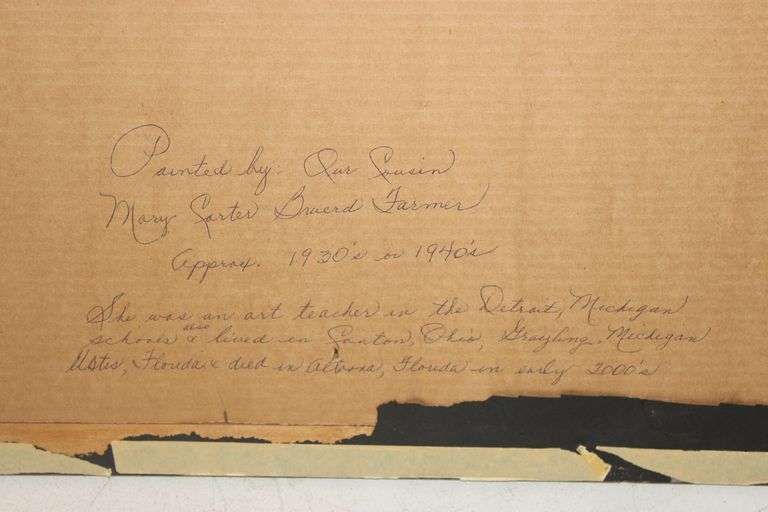 Painted by: Our Cousin
Mary Carter Farmer
Approx. 1930's or 1940's
She was an art teacher in the Detroit, Michigan
schools & also lived in Canton, Ohio, Grayling, Michigan
Florida & died in Altoona, Florida in early 2000's